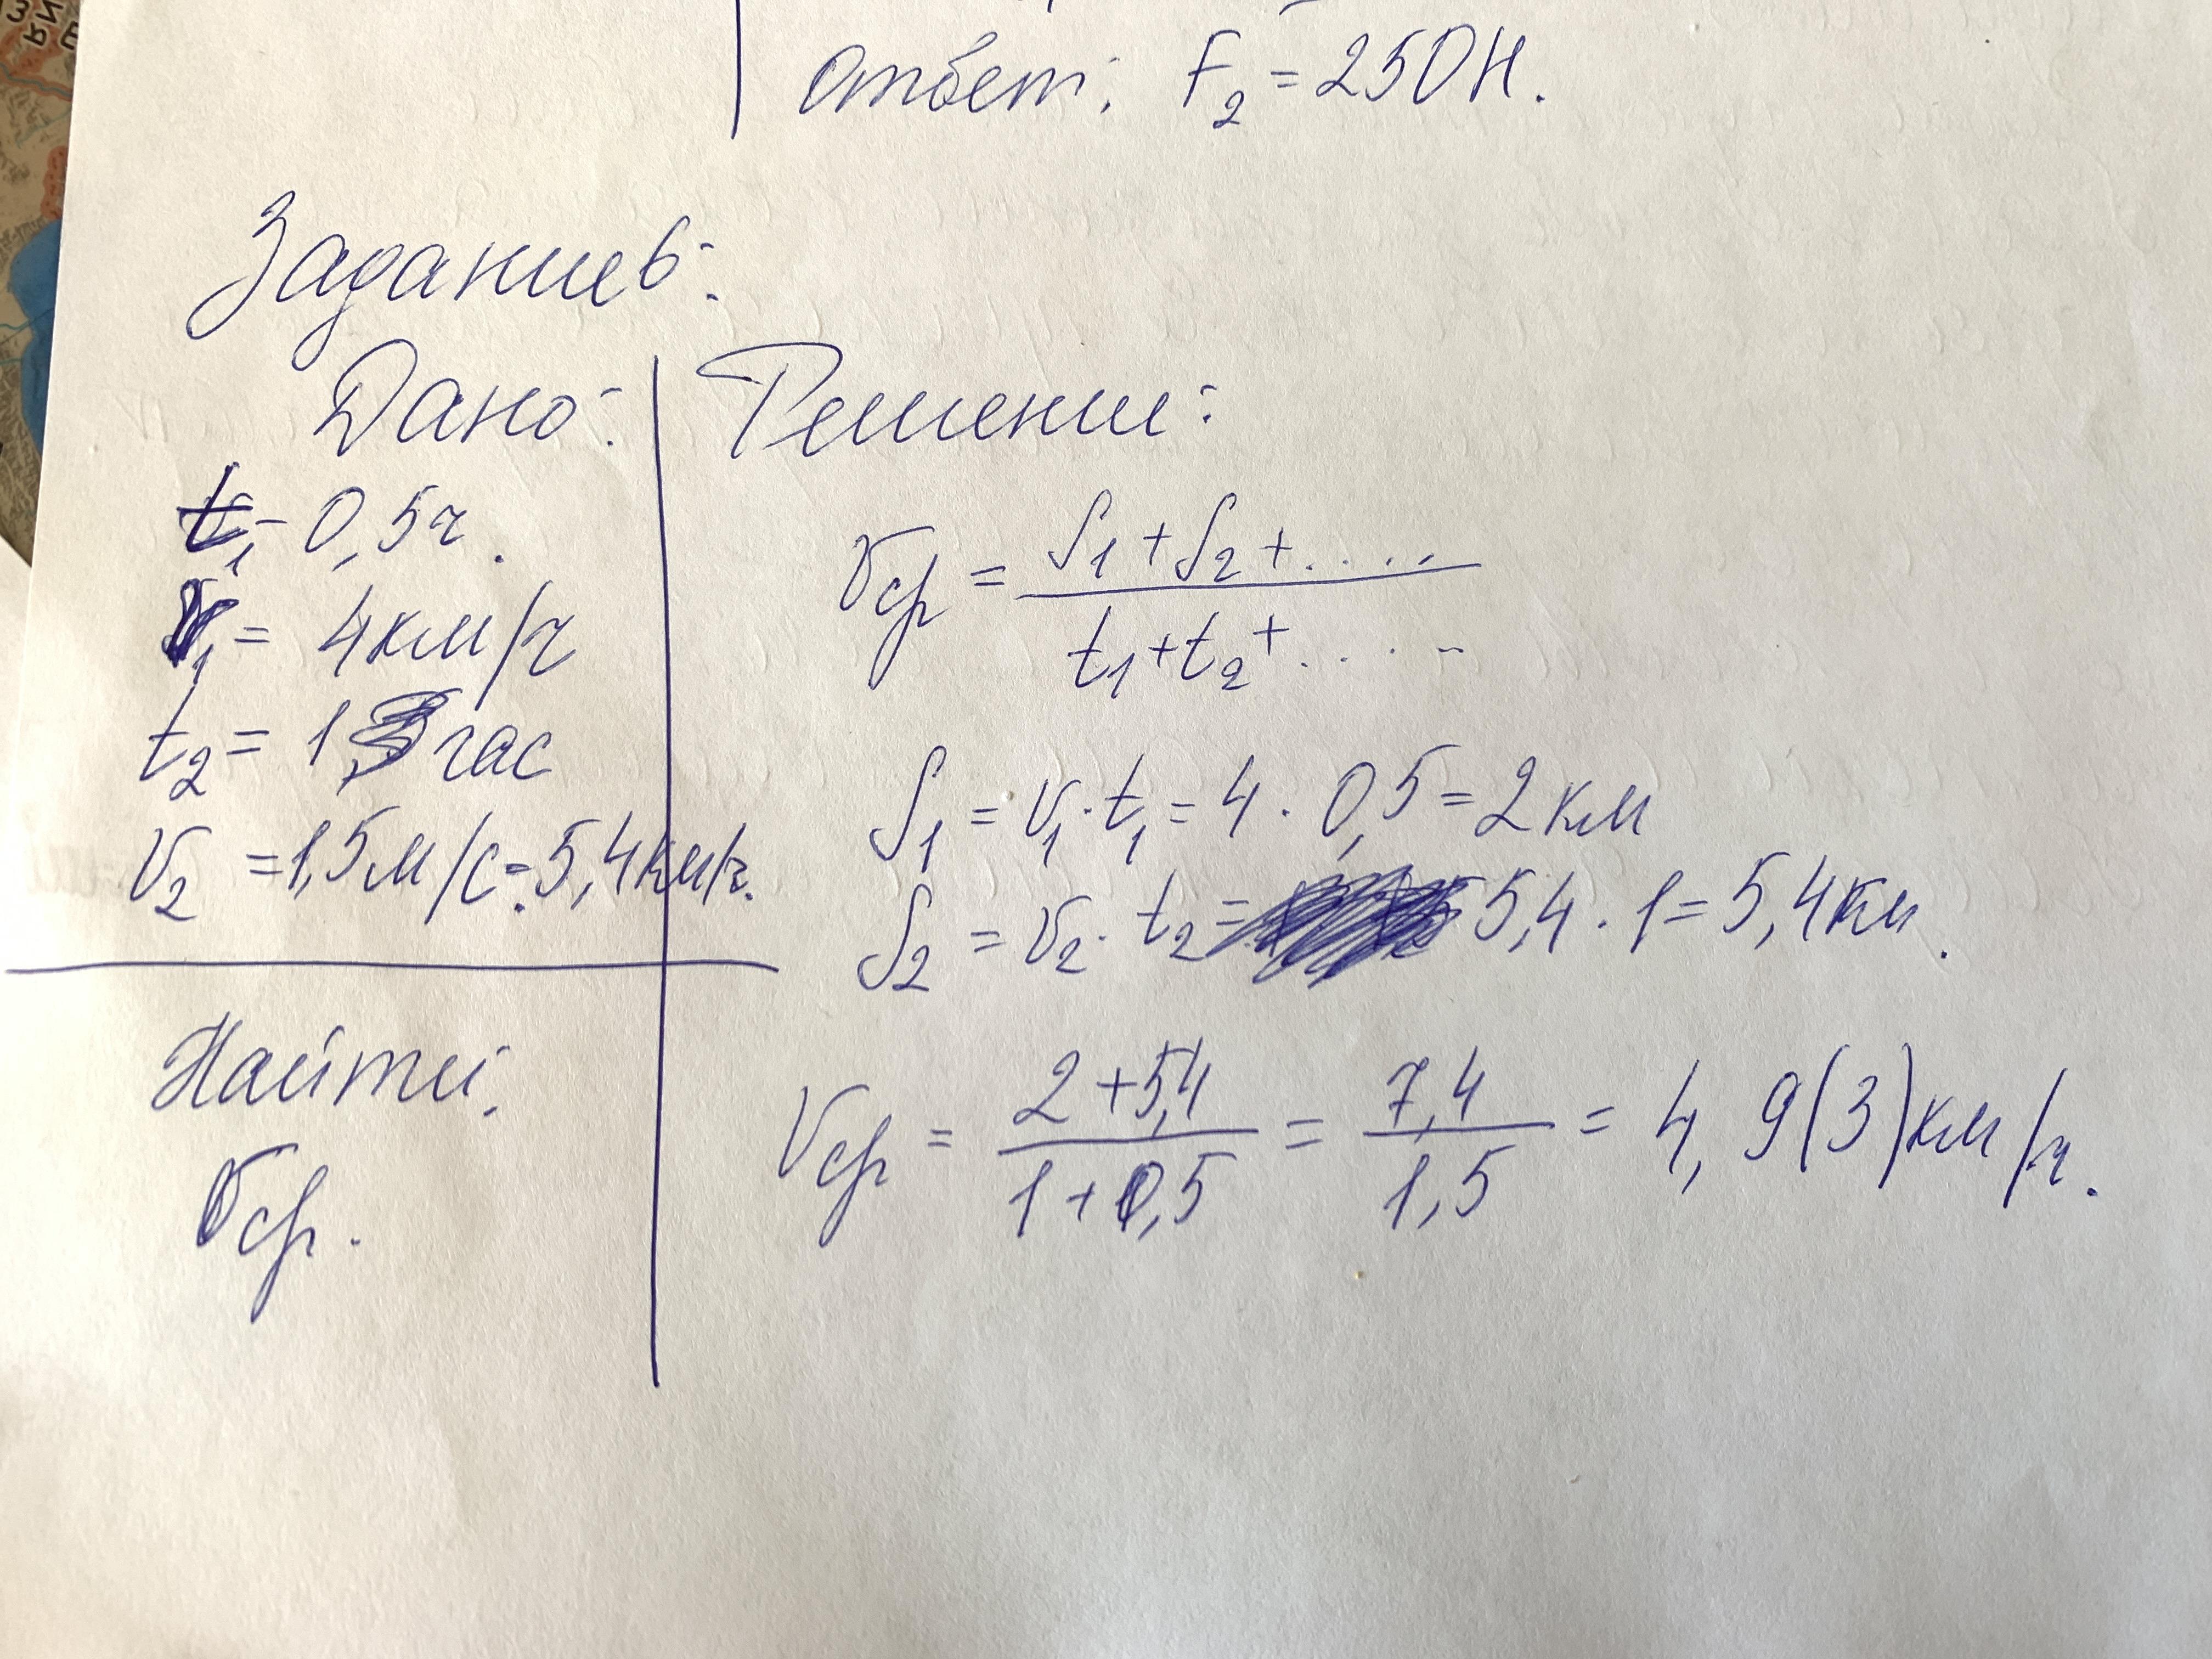 Ответ: F₂ = 250Н.
Задание6:
Дано:
t₁ - 0,5ч.
V₁ = 4км/ч
t₂ = 1 час
V₂ = 1,5м/с = 5,4км/ч.
Найти:
Vср.
Решение:
Vср = (S₁ + S₂ + ....) / (t₁ + t₂ + ....)
S₁ = V₁ · t₁ = 4 · 0,5 = 2км
S₂ = V₂ · t₂ = 5,4 · 1 = 5,4км.
Vср = (2 + 5,4) / (1 + 0,5) = 7,4 / 1,5 = 4,9(3)км/ч.